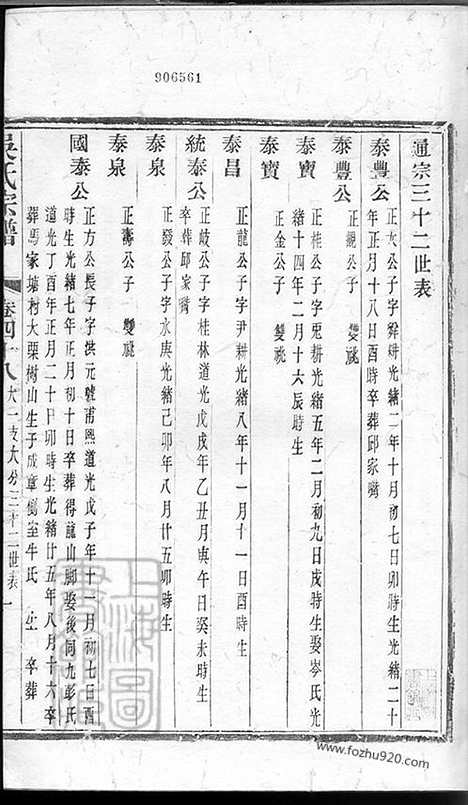 906561
通宗三十二世表
泰豐公
正文公子字舜耕光緒二年十月初七日卯時生光緒二十
年正月十八日酉時卒葬邱家嘴
泰豐公
正觀公子 雙祧
泰寶
正桂公子字寬耕光緒五年二月初九日戌時生娶岑氏光
緒十四年二月十六辰時生
泰寶
正金公子 雙祧
泰昌
正龍公子字尹耕光緒八年十一月十一日酉時生
統泰公
正岐公子字桂林道光戊戌年乙丑月庚午日癸未時生
卒葬邱家嘴
泰泉
正發公子字水庚光緒己卯年八月廿五卯時生
泰泉
正壽公子 雙祧
國泰公
正方公長子字洪元號甫熙道光戊子年十一月初七日酉
時生光緒七年正月初十日卒葬得龍山腳娶後河九彭氏
道光丁酉年正月二十日卯時生光緒廿五年八月十六卒
葬馬家塘村大栗樹山生子成章側室牛氏 生 卒葬
吳氏宗譜
卷四十八 大一支大分三十二世表 一
上海圖
書館藏
www.fozhu920.com